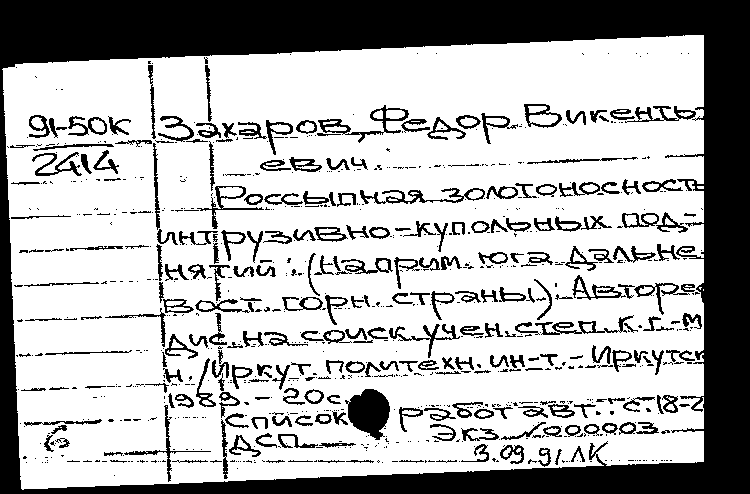 91-50К
2414
Захаров, Федор Викенть
евич.
Россыпная золотоносность
интрузивно-купольных под-
нятий : (На прим. юга Дальне-
вост. горн. страны) : Авторе
дис. на соиск. учен. степ. к. г.-м
н. / Иркут. политехн. ин-т. - Иркутск
1989. - 20с
Список работ авт.: с. 18-2
ДСП Экз. №000003
6
3.09.91 ЛК